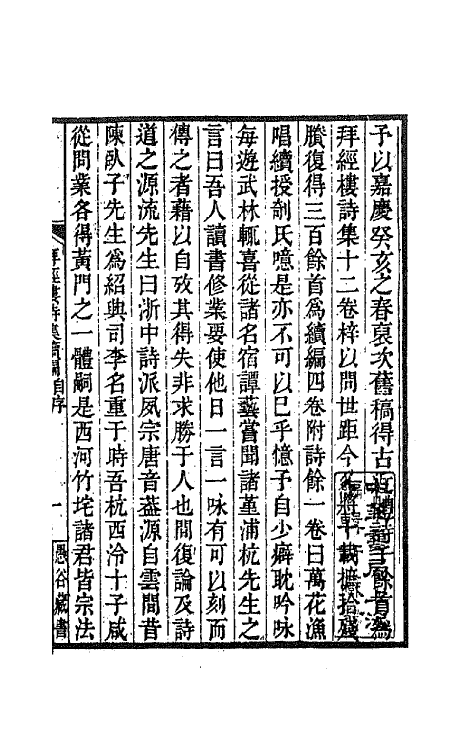 予以嘉慶癸亥之春裒次舊稿得古近體詩千餘首為
拜經樓詩集十二卷梓以問世距今將十載摭拾殘
賸復得三百餘首為續編四卷附詩餘一卷曰萬花漁
唱續授剞氏噫是亦不可以已乎憶予自少癖耽吟咏
每遊武林輒喜從諸名宿譚藝嘗聞諸堇浦杭先生之
言曰吾人讀書修業要使他日一言一咏有可以刻而
傳之者藉以自攷其得失非求勝于人也間復論及詩
道之源流先生曰浙中詩派夙宗唐音葢源自雲間昔
陳臥子先生為紹興司李名重于時吾杭西泠十子咸
從問業各得黃門之一體嗣是西河竹垞諸君皆宗法
拜經樓詩集續編自序
一
愚谷叢書